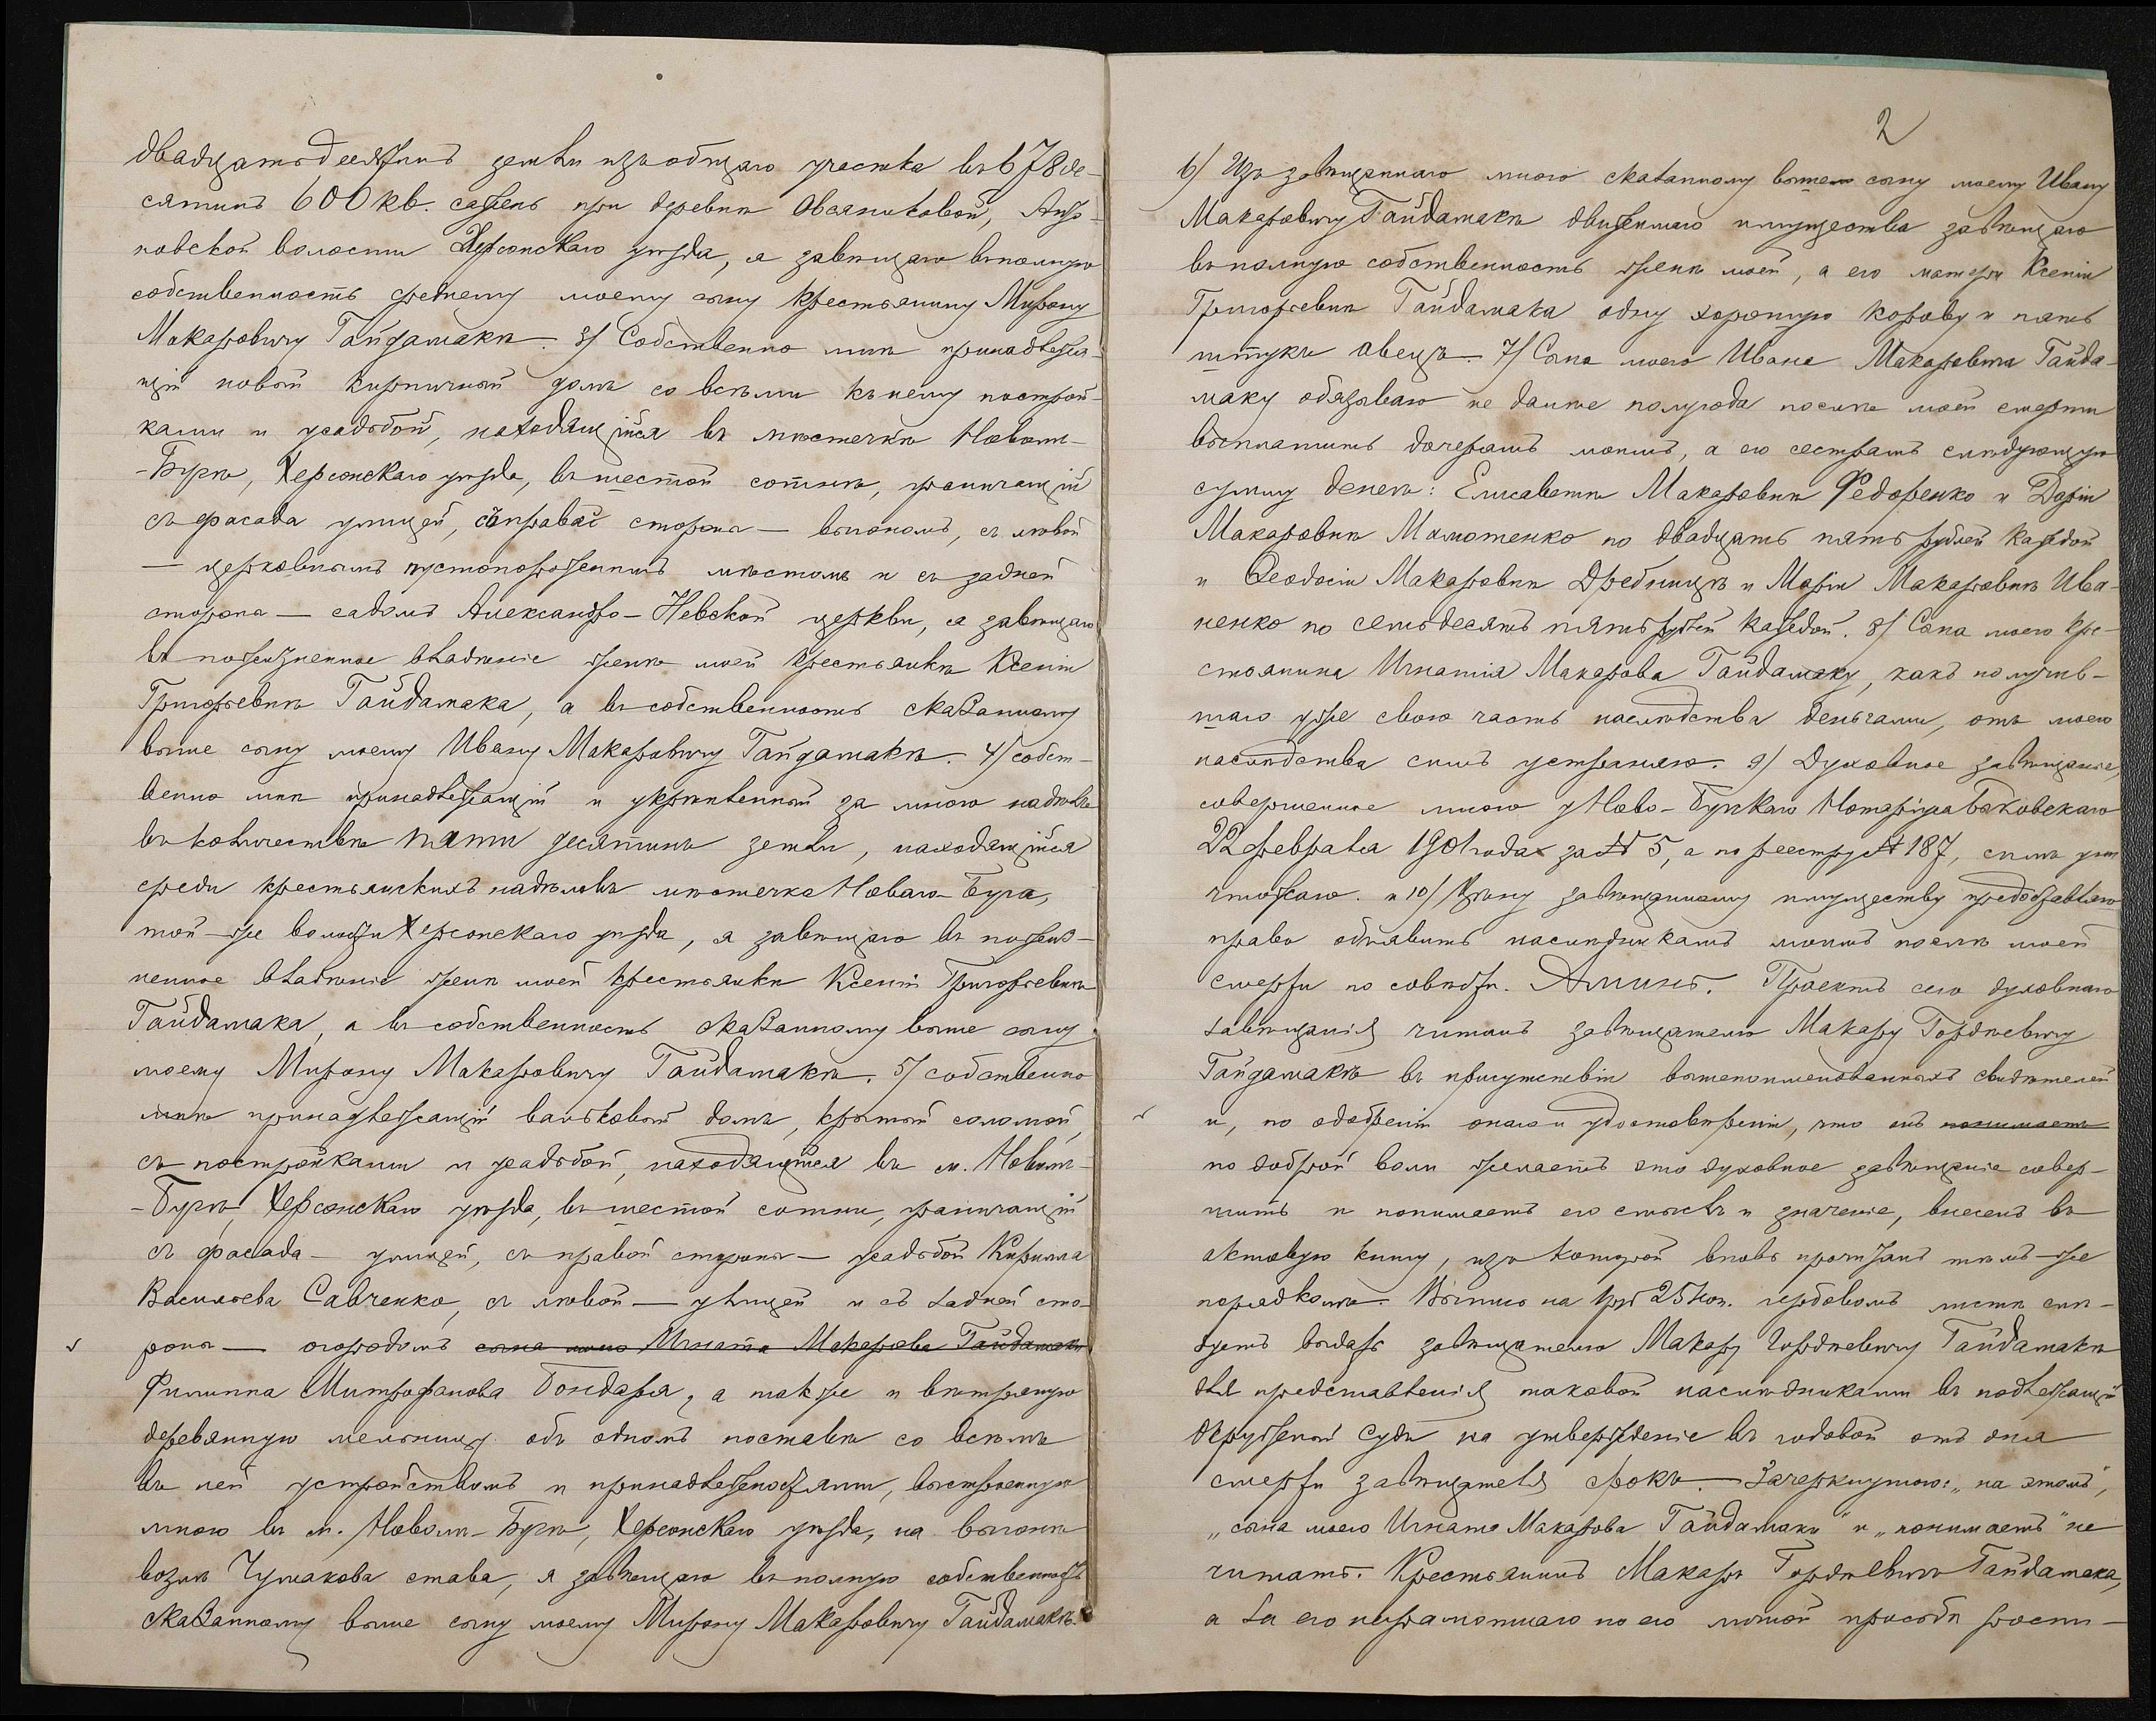 двадцать десятинъ земли изъ общаго участка въ 678 де-
сятинъ 600 кв. сажень при деревнѣ Овсяниковой,
новской волости Херсонскаго уѣзда, я завѣщаю въ полную
собственность среднему моему сыну крестьянину Мирону
Макаровичу Гайдамакѣ. 3/ Собственно мнѣ принадлежа-
щій новый кирпичный домъ со всѣми къ нему построй-
ками и усадьбой, находящійся въ мѣстечкѣ Новомъ-
-Бугѣ, Херсонскаго уѣзда, въ шестой сотнѣ, граничащій
съ фасада улицей, съ правой стороны — выгономъ, съ лѣвой
— церковнымъ пустопорожнимъ мѣстомъ и съ задней
стороны — садомъ Александро-Невской церкви, я завѣщаю
въ пожизненное владѣніе женѣ моей крестьянкѣ Ксеніи
Григорьевнѣ Гайдамака, а въ собственность сказанному
выше сыну моему Ивану Макаровичу Гайдамакѣ. 4/ собст-
венно мнѣ принадлежащій и укрѣпленный за мною надѣлъ
въ количествѣ пяти десятинъ земли, находящійся
среди крестьянскихъ надѣловъ мѣстечка Новаго-Буга,
той-же волости Херсонскаго уѣзда, я завѣщаю въ пожиз-
ненное владѣніе женѣ моей крестьянкѣ Ксеніи Григорьевнѣ
Гайдамака, а въ собственность сказанному выше сыну
моему Мирону Макаровичу Гайдамакѣ. 5/ собственно
мнѣ принадлежащій вальковый домъ, крытый соломой,
съ постройками и усадьбой, находящійся въ м. Новомъ-
-Бугѣ, Херсонскаго уѣзда, въ шестой сотни, граничащій
съ фасада — улицей, съ правой стороны — усадьбой Кирилла
Васильева Савченко, съ лѣвой — улицей и съ задней сто-
роны — огородомъ сына моего Игната Макарова Гайдамаки
Филиппа Митрофанова Бондаря, а также и вѣтряную
деревянную мельницу объ одномъ поставѣ со всѣмъ
въ ней устройствомъ и принадлежностями, выстроенную
мною въ м. Новомъ-Бугѣ, Херсонскаго уѣзда, на выгонѣ
возлѣ Чумакова става, я завѣщаю въ полную собственность
сказанному выше сыну моему Мирону Макаровичу Гайдамакѣ.
2
6/ Изъ завѣщаннаго мною сказанному выше сыну моему Ивану
Макаровичу Гайдамакѣ движимаго имущества завѣщаю
въ полную собственность женѣ моей, а его матери Ксеніи
Григорьевнѣ Гайдамака одну хорошую корову и пять
штукъ овецъ. 7/ Сына моего Ивана Макаровича Гайда-
маку обязываю не далѣе полугода послѣ моей смерти
выплатить дочерямъ моимъ, а его сестрамъ слѣдующую
сумму денегъ: Елисаветѣ Макаровнѣ Федоренко и Даріи
Макаровнѣ Мамотенко по двадцать пять рублей каждой
и Ѳеодосіи Макаровнѣ Дребницѣ и Маріи Макаровнѣ Ива-
ненко по семьдесятъ пять рублей каждой. 8/ Сына моего кре-
стьянина Игнатія Макарова Гайдамаку, какъ получив-
шаго уже свою часть наслѣдства деньгами, отъ моего
наслѣдства симъ устраняю. 9/ Духовное завѣщаніе,
совершенное мною у Ново-Бугскаго Нотаріуса Баковскаго
22 февраля 1901 года за № 5, а по реестру № 187, симъ уни
чтожаю. и 10/ Цѣну завѣщанному имуществу предоставляю
право объявить наслѣдникамъ моимъ послѣ моей
смерти по совѣсти. Аминь. Проектъ сего духовнаго
завѣщанія читанъ завѣщателю Макару Гордѣевичу
Гайдамакѣ въ присутствіи вышепоименованныхъ свидѣтелей
и, по одобреніи онаго и удостовѣреніи, что онъ понимаетъ
по доброй воли желаетъ это духовное завѣщаніе совер-
шить и понимаетъ его смыслъ и значеніе, внесенъ въ
актовую книгу, изъ которой вновь прочитанъ тѣмъ-же
порядкомъ. Выпись на 1 руб 25 коп. гербовомъ листѣ слѣ-
дуетъ выдать завѣщателю Макару Гордѣевичу Гайдамакѣ
для представленія таковой наслѣдниками въ подлежащій
Окружный Судъ на утвержденіе въ годовой отъ дня
смерти завѣщателя срокъ. Зачеркнутого: „на этомъ",
„сына моего Игната Макарова Гайдамаки" и „понимаетъ" не
читать. Крестьянинъ Макаръ Гордѣевичъ Гайдамака,
а за его неграмотнаго по его личной просьбѣ роспи-